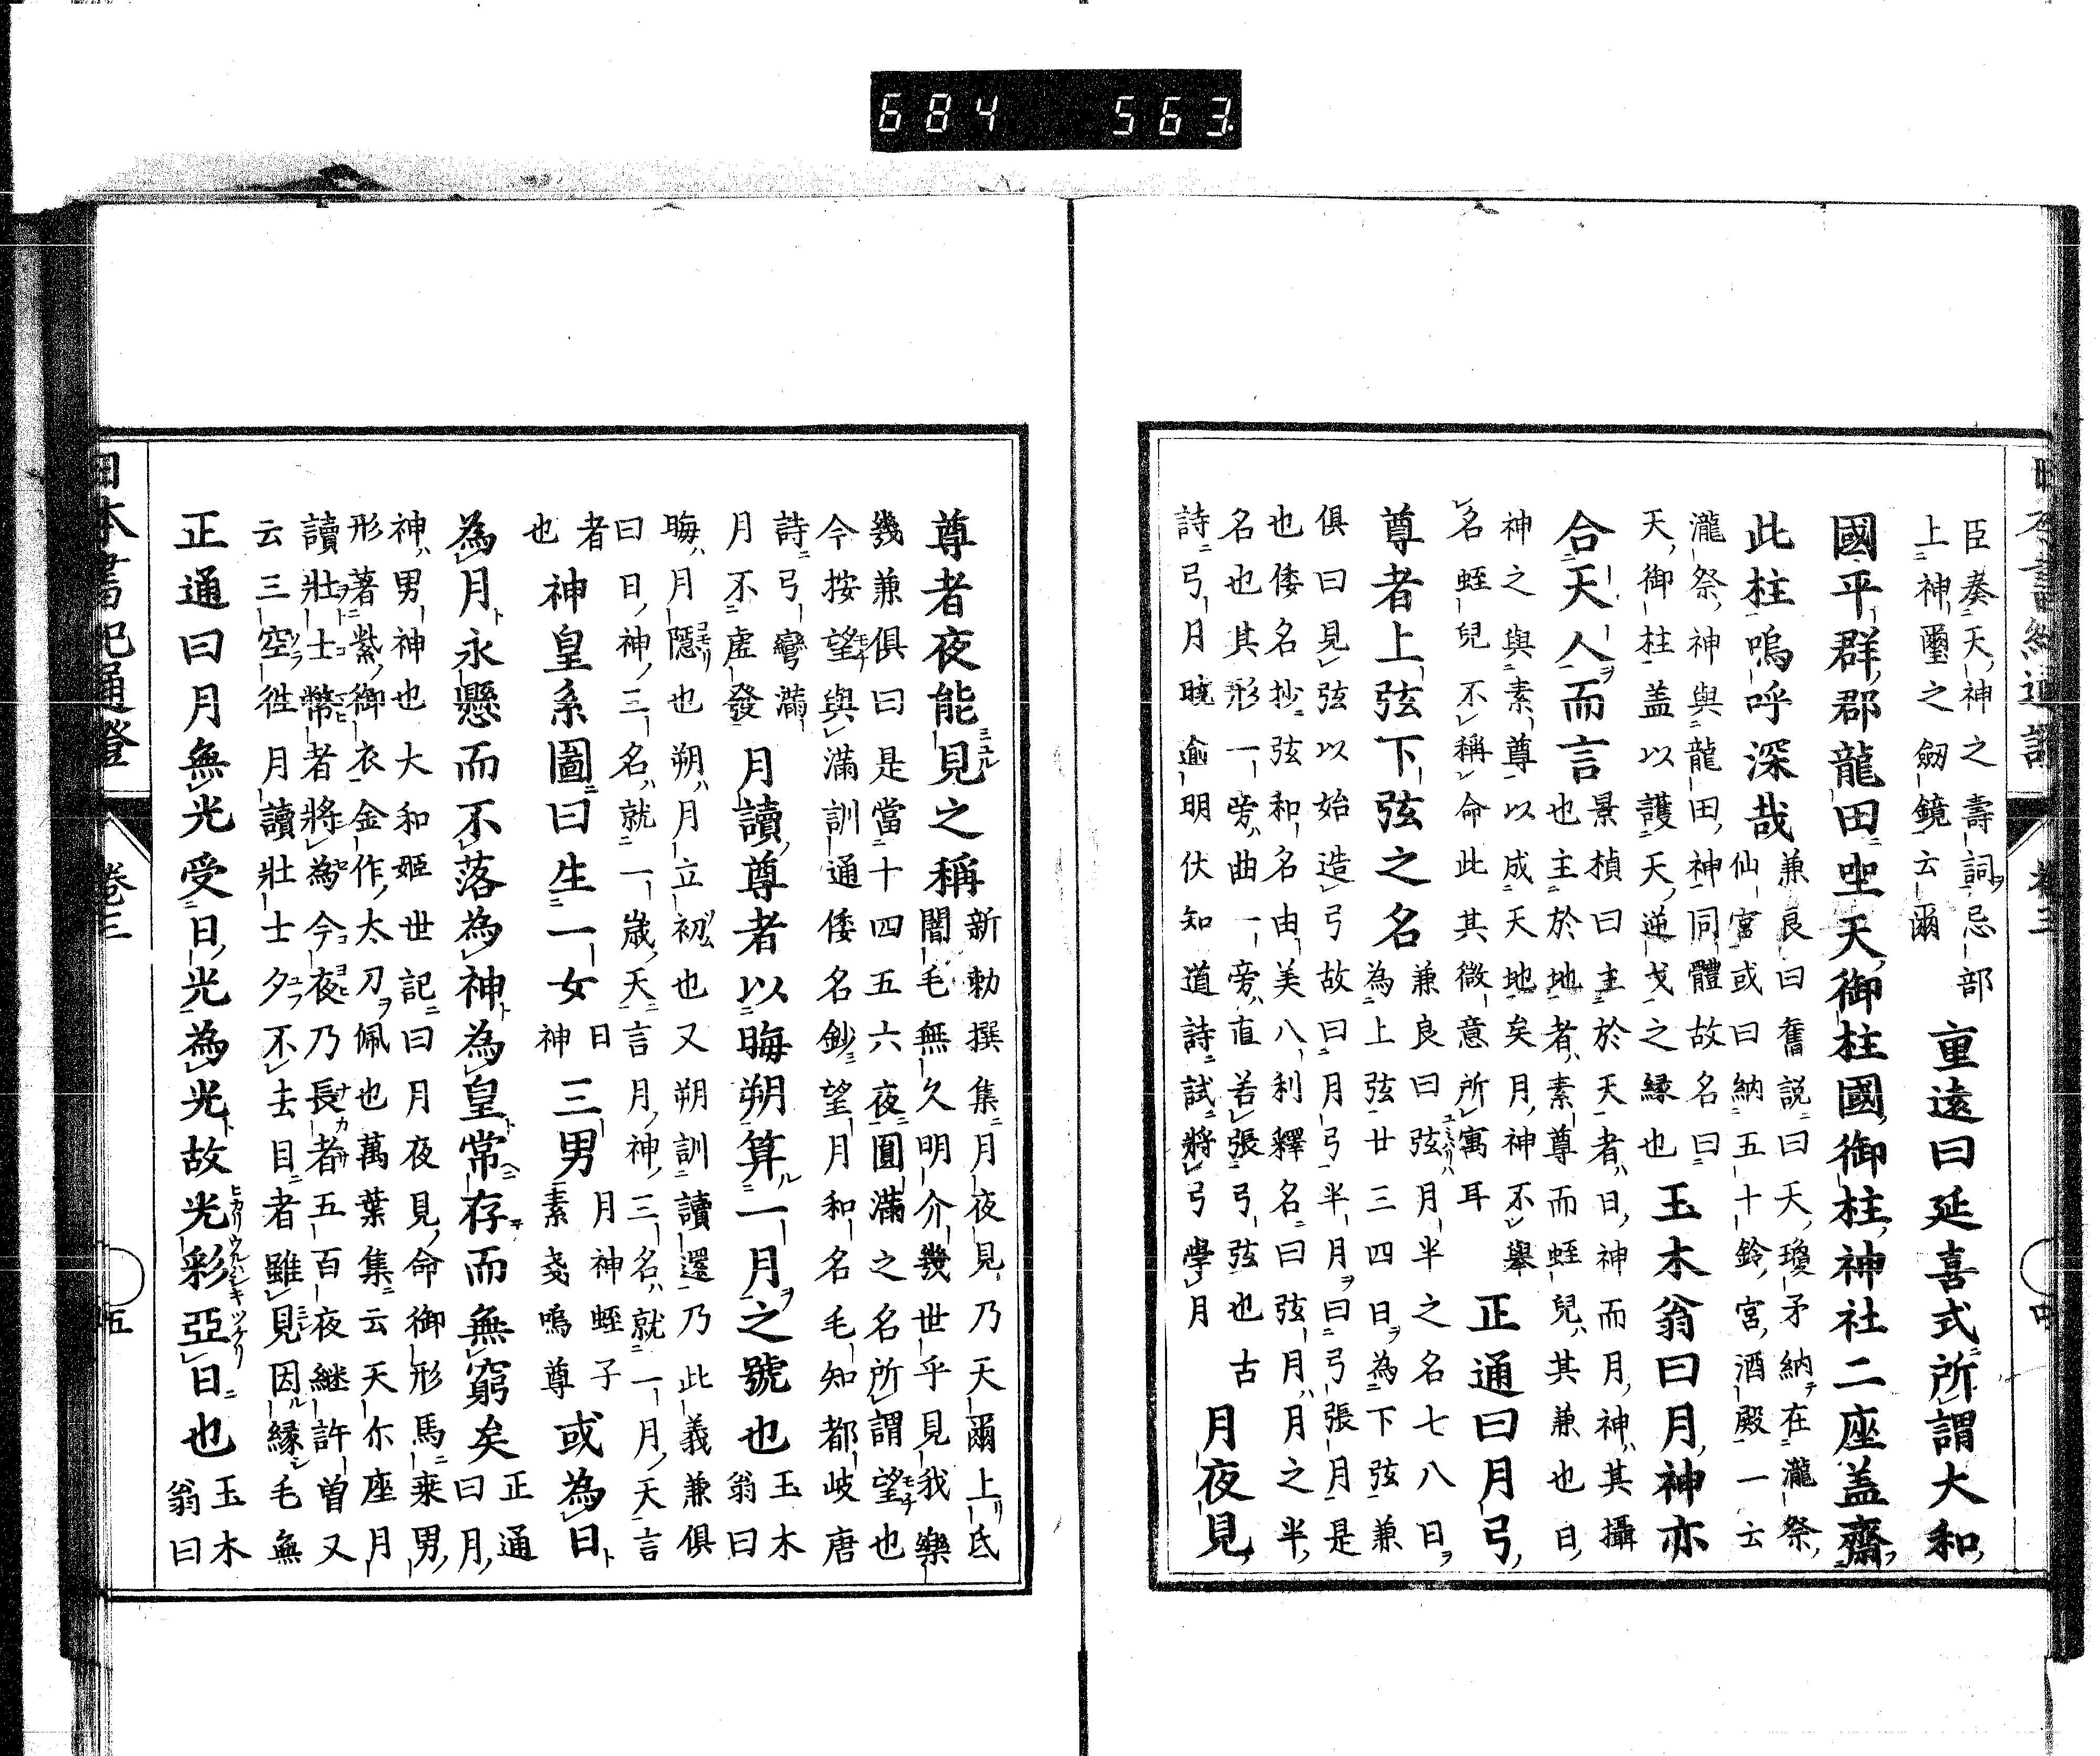 臣奏天神之壽詞忌部
上神璽之劔鏡云爾
重遠曰延喜式所謂大和
國平群郡龍田坐天御柱國御柱神社二座盖齋
此柱嗚呼深哉
兼良曰舊説曰天瓊矛納在瀧祭
仙宮或曰納五十鈴宮酒殿一云
瀧祭神與龍田神同體故名曰
天御柱盖以護天逆戈之縁也
玉木翁曰月神亦
合天人而言
景楨曰主於天者日神而月神其攝
也主於地者素尊而蛭兒其兼也日
神之與素尊以成天地矣月神不舉
名蛭兒不稱命此其微意所寓耳
正通曰月弓
尊者上弦下弦之名
兼良曰弦月半之名七八日
為上弦廿三四日為下弦兼
俱曰見弦以始造弓故曰月弓半月曰弓張月是
也倭名抄弦和名由美八利釋名曰弦月月之半
名也其形一旁曲一旁直若張弓弦也古
詩弓月曉逾明伏知道詩試將弓學月
月夜見
尊者夜能見之稱
新勅撰集月夜見乃天爾上氐
闇毛無久明介幾世乎見我樂
幾兼俱曰是當十四五六夜圓滿之名所謂望也
今按望與滿訓通倭名鈔望月和名毛知都岐唐
詩弓彎滿
月不虛發
月讀尊者以晦朔算一月之號也
玉木
翁曰
晦月隱也朔月立初也又朔訓讀還乃此義兼俱
曰日神三名就一歳天言月神三名就一月天言
者
也
神皇系圖曰生一女
日
神
三男
月神蛭子
素戔嗚尊
或為日
為月永懸而不落為神為皇常存而無窮矣
正通
曰月
神男神也大和姫世記曰月夜見命御形馬乗男
形著紫御衣金作太刀佩也萬葉集云天尓座月
讀壯士幣者將為今夜乃長者五百夜継許曽又
云三空徃月讀壯士夕不去目者雖見因縁毛無
正通曰月無光受日光為光故光彩亞日也
玉木
翁曰
日本書紀通證 卷三 五
684 563